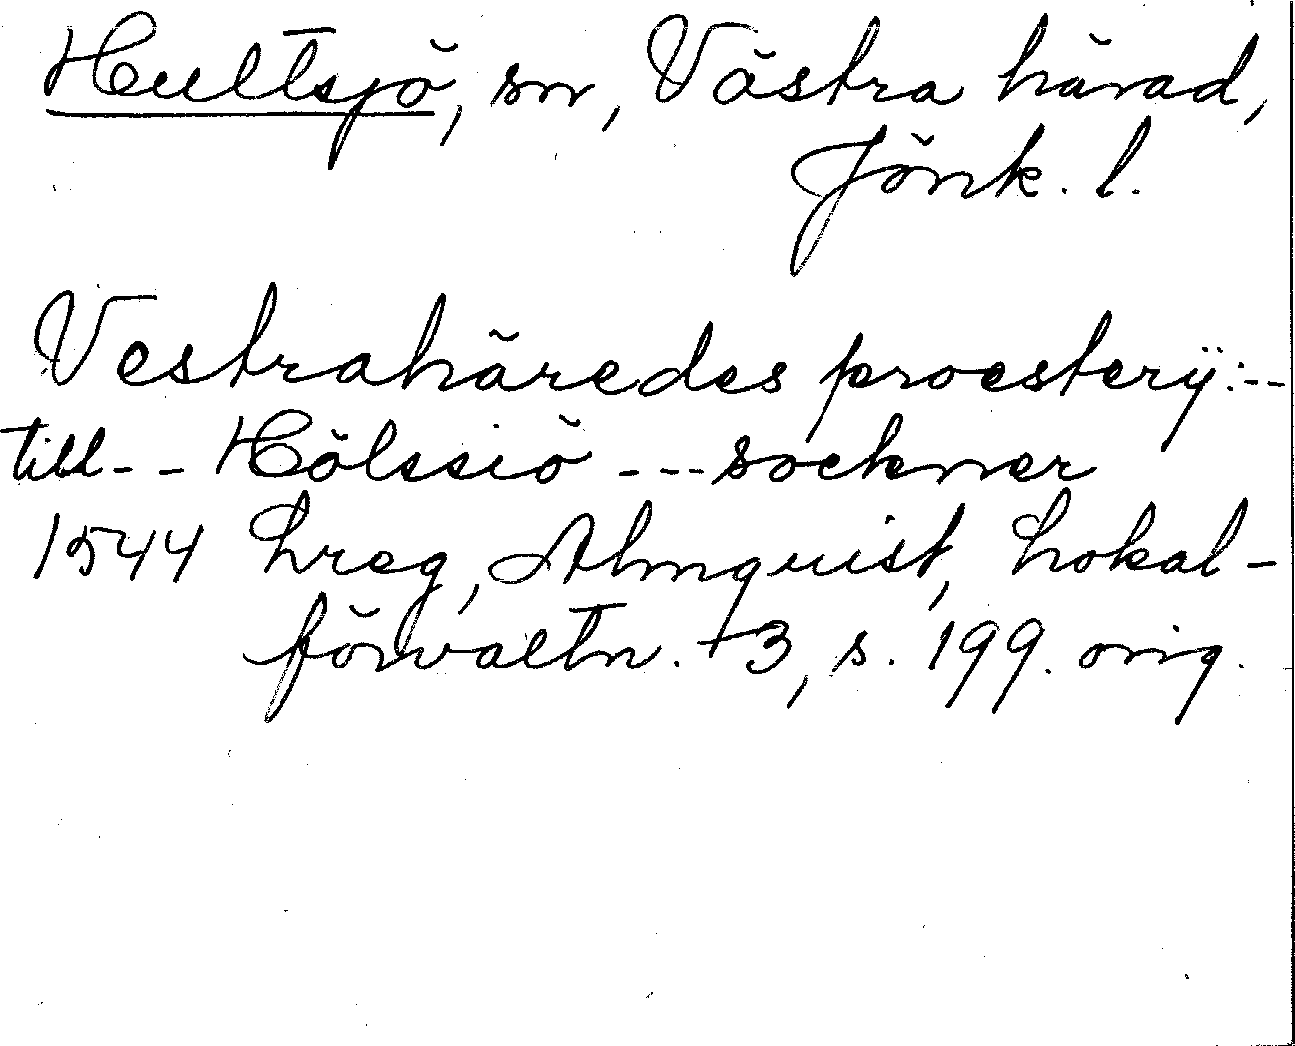 Hultsjö, sn, Västra härad,
Jönk. l.
Vestrahäredes proesterÿ:--
till-- Hölssiö --- sockner
1544 Lreg, Almquist, Lokal-
förvaltn. +3, s. 199. orig.